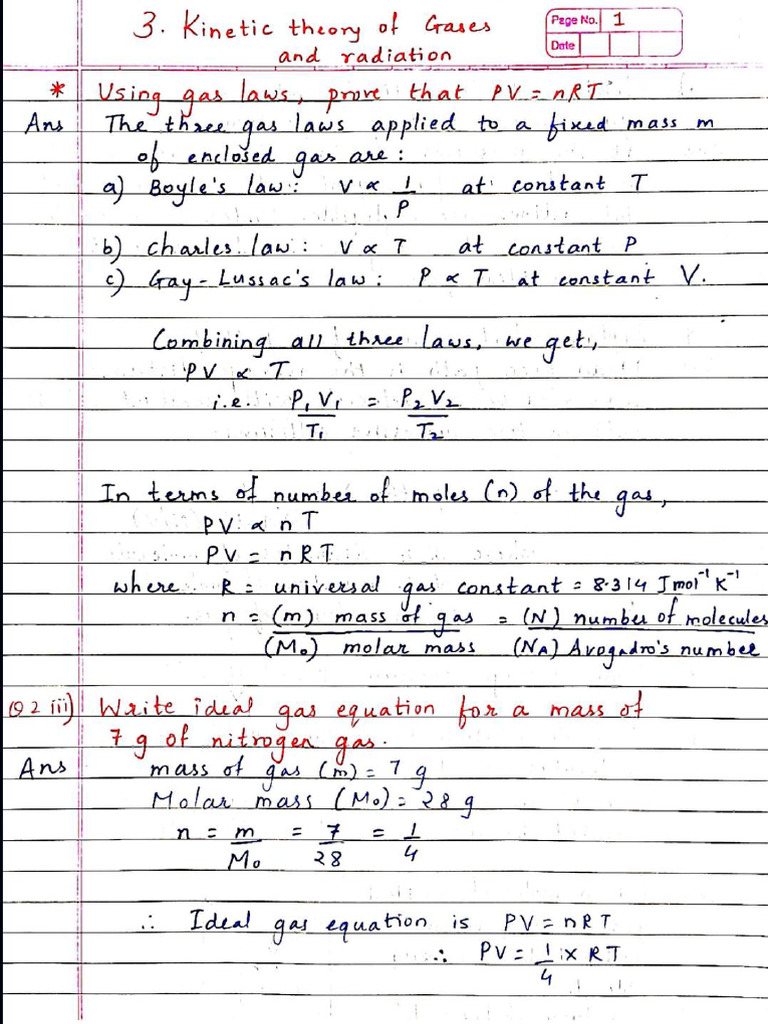 3. Kinetic theory of Gases
and radiation
Page No. 1
Date
* Using gas laws, prove that PV = nRT
Ans The three gas laws applied to a fixed mass m
of enclosed gas are :
a) Boyle's law : V ∝ 1/P at constant T
b) Charles law : V ∝ T at constant P
c) Gay-Lussac's law : P ∝ T at constant V.
Combining all three laws, we get,
PV ∝ T
i.e. P₁V₁/T₁ = P₂V₂/T₂
In terms of number of moles (n) of the gas,
PV ∝ nT
PV = nRT
where R = universal gas constant = 8.314 J mol⁻¹ K⁻¹
n = (m) mass of gas / (M₀) molar mass = (N) number of molecules / (NA) Avogadro's number
Q2 iii) Write ideal gas equation for a mass of
7 g of nitrogen gas.
Ans mass of gas (m) = 7 g
Molar mass (M₀) = 28 g
n = m/M₀ = 7/28 = 1/4
∴ Ideal gas equation is PV = nRT
∴ PV = 1/4 × RT